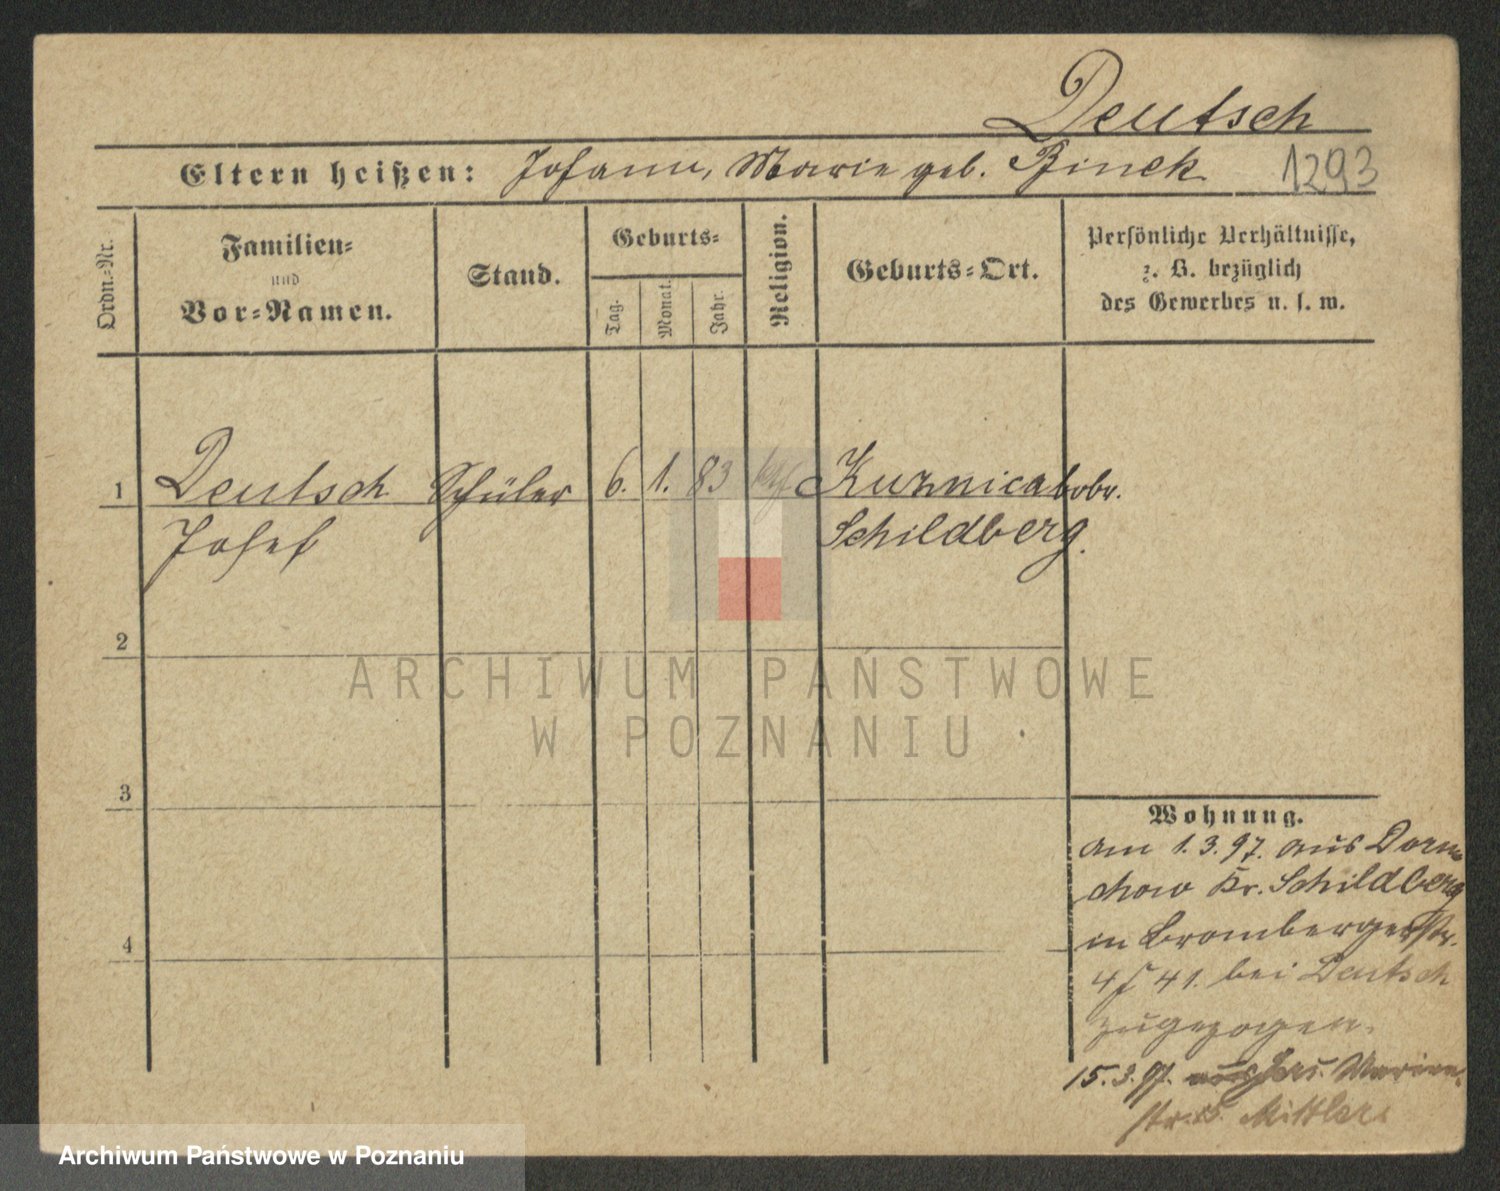 Deutsch
Eltern heißen: Johann, Marie geb. Binek 1293
Ordn.-Nr.
Familien-
und
Vor-Namen.
Stand.
Geburts-
Tag.
Monat.
Jahr.
Religion.
Geburts-Ort.
Persönliche Verhältnisse,
z. B. bezüglich
des Gewerbes u. s. w.
1 Deutsch Schüler 6. 1. 83 kth Kuznica bobr.
Josef Schildberg.
2
3
4
Wohnung.
am 1.3.97. aus Dorn
chow Kr. Schildberg
in Brombergerstr.
4/41. bei Deutsch
zugezogen.
15.3.97. Marien
str. Mittler
ARCHIWUM PAŃSTWOWE
W POZNANIU
Archiwum Państwowe w Poznaniu